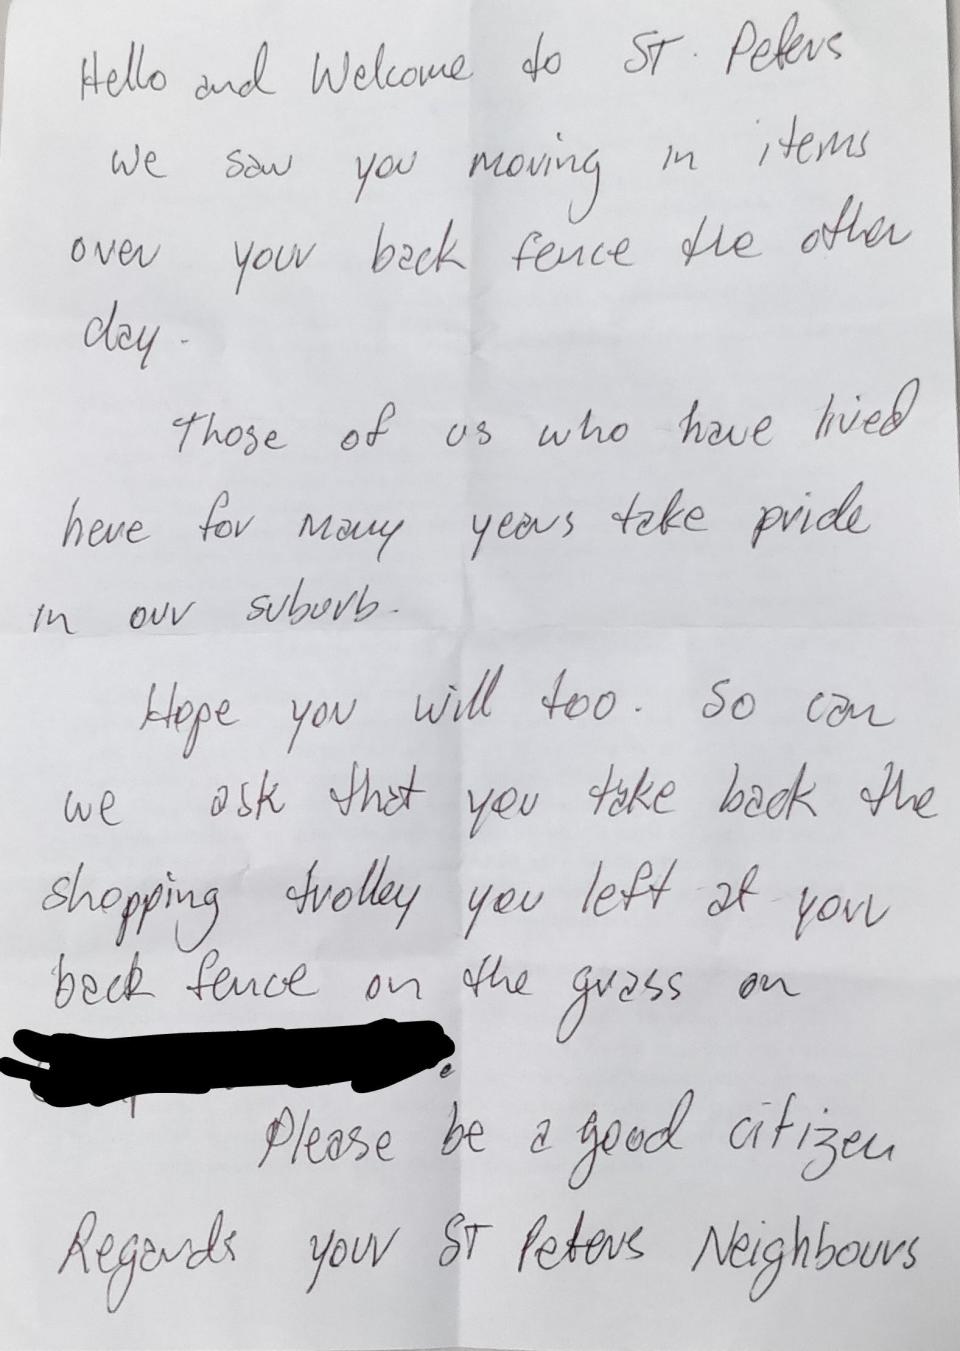 Hello and Welcome to ST. Peters
We saw you moving in items
over your back fence the other
day.
Those of us who have lived
here for many years take pride
in our suburb.
Hope you will too. So can
we ask that you take back the
shopping trolley you left at your
back fence on the grass on
.
Please be a good citizen
Regards your ST Peters Neighbours